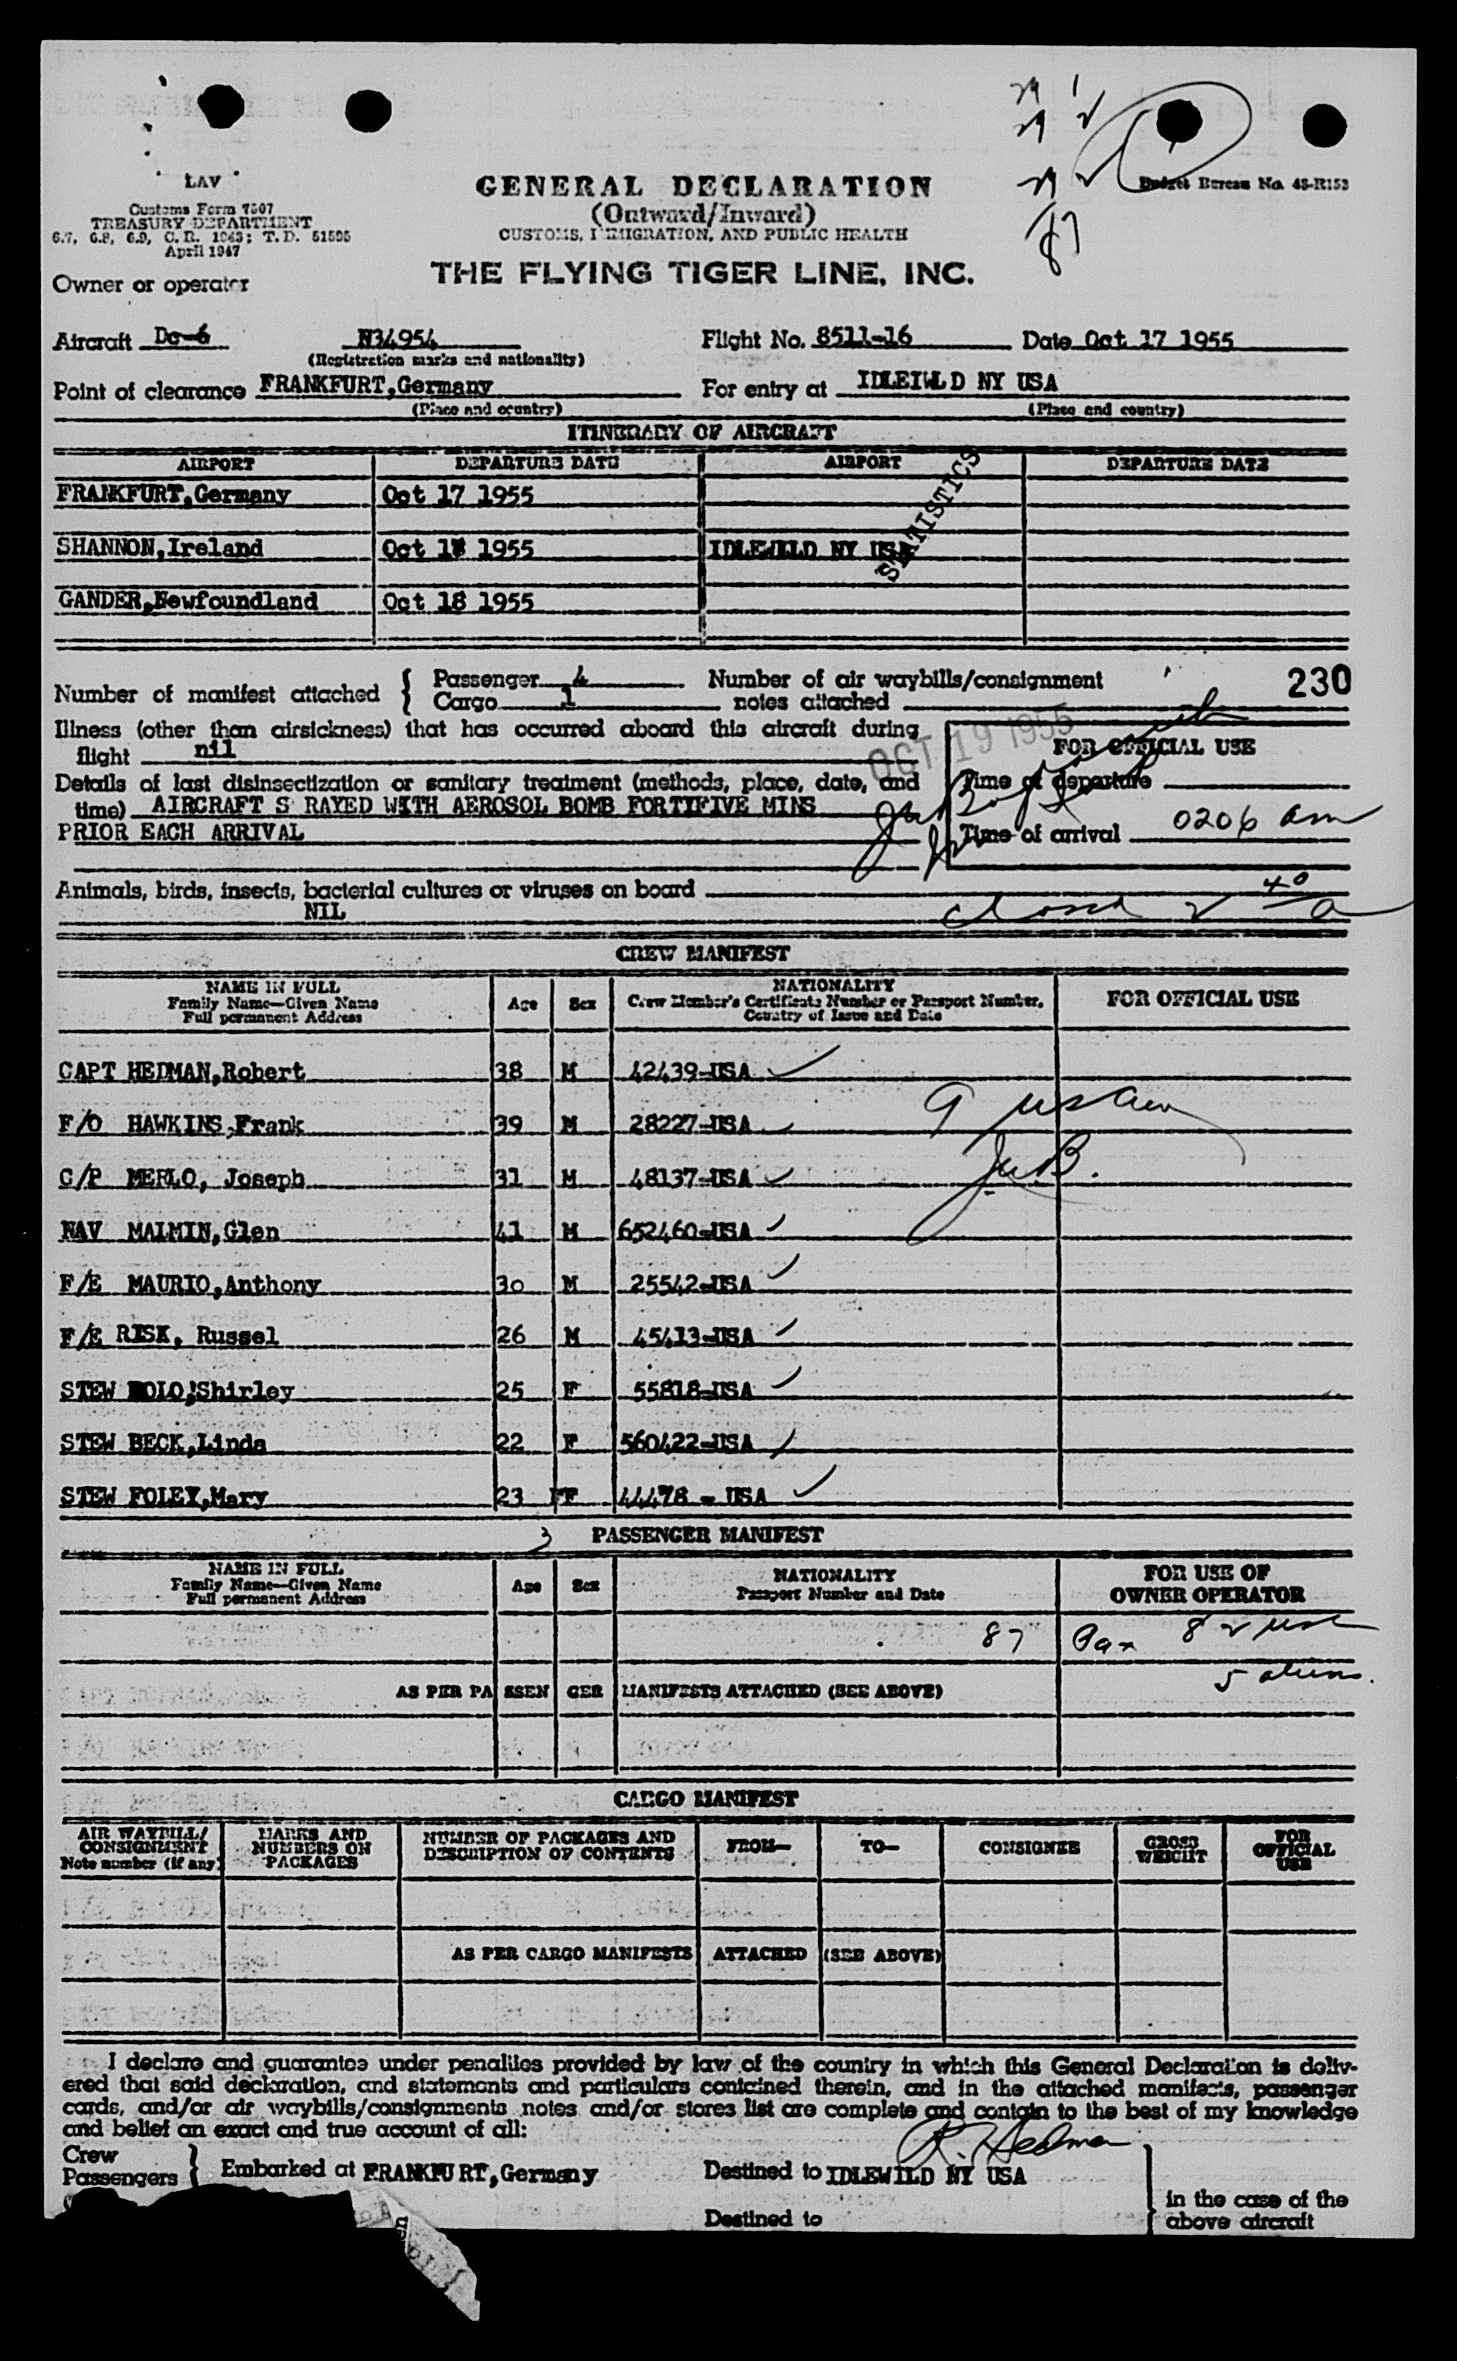 LAV
Customs Form 7507
TREASURY DEPARTMENT
6.7, 6.8, 6.9, C. R. 1943; T. D. 51595
April 1947
GENERAL DECLARATION
(Outward/Inward)
CUSTOMS, IMMIGRATION, AND PUBLIC HEALTH
Budget Bureau No. 43-R153
87
THE FLYING TIGER LINE, INC.
Owner or operator
Aircraft Dc-6 N34954 Flight No. 8511-16 Date Oct 17 1955
(Registration marks and nationality)
Point of clearance FRANKFURT,Germany For entry at IDLEIWLD NY USA
(Place and country) (Place and country)
ITINERARY OF AIRCRAFT
AIRPORT DEPARTURE DATE AIRPORT DEPARTURE DATE
STATISTICS
FRANKFURT,Germany Oct 17 1955
SHANNON,Ireland Oct 18 1955 IDLEWILD NY USA
GANDER,Newfoundland Oct 18 1955
Number of manifest attached { Passenger 4 Number of air waybills/consignment 230
Cargo 1 notes attached
Illness (other than airsickness) that has occurred aboard this aircraft during
flight nil
OCT 19 1955
FOR OFFICIAL USE
Details of last disinsectization or sanitary treatment (methods, place, date, and Time of departure
time) AIRCRAFT S RAYED WITH AEROSOL BOMB FORTIFIVE MINS
PRIOR EACH ARRIVAL Time of arrival 0206 am
Animals, birds, insects, bacterial cultures or viruses on board
NIL
closed 2 40 a
CREW MANIFEST
NAME IN FULL
Family Name—Given Name
Full permanent Address
Age Sex
NATIONALITY
Crew Member's Certificate Number or Passport Number,
Country of Issue and Date
FOR OFFICIAL USE
CAPT HEDMAN,Robert 38 M 42439-USA
F/O HAWKINS,Frank 39 M 28227-USA
9
C/P MERLO, Joseph 31 M 48137-USA
NAV MALMIN,Glen 41 M 652460-USA
F/E MAURIO,Anthony 30 M 25542-USA
F/E RISK, Russel 26 M 45413-USA
STEW BOLO,Shirley 25 F 55818-USA
STEW BECK,Linda 22 F 560422-USA
STEW FOLEY,Mary 23 FF 44478 - USA
3
PASSENGER MANIFEST
NAME IN FULL
Family Name—Given Name
Full permanent Address
Age Sex
NATIONALITY
Passport Number and Date
FOR USE OF
OWNER OPERATOR
87 Pax 82 usc
5 aliens.
AS PER PASSENGER MANIFESTS ATTACHED (SEE ABOVE)
CARGO MANIFEST
AIR WAYBILL/
CONSIGNMENT
Note number (if any)
MARKS AND
NUMBERS ON
PACKAGES
NUMBER OF PACKAGES AND
DESCRIPTION OF CONTENTS
FROM— TO— CONSIGNEE
GROSS
WEIGHT
FOR
OFFICIAL
USE
AS PER CARGO MANIFESTS ATTACHED (SEE ABOVE)
I declare and guarantee under penalties provided by law of the country in which this General Declaration is deliv-
ered that said declaration, and statements and particulars contained therein, and in the attached manifests, passenger
cards, and/or air waybills/consignments notes and/or stores list are complete and contain to the best of my knowledge
and belief an exact and true account of all:
R. Hedman
Crew
Passengers } Embarked at FRANKFURT,Germany Destined to IDLEWILD NY USA
Destined to
in the case of the
above aircraft